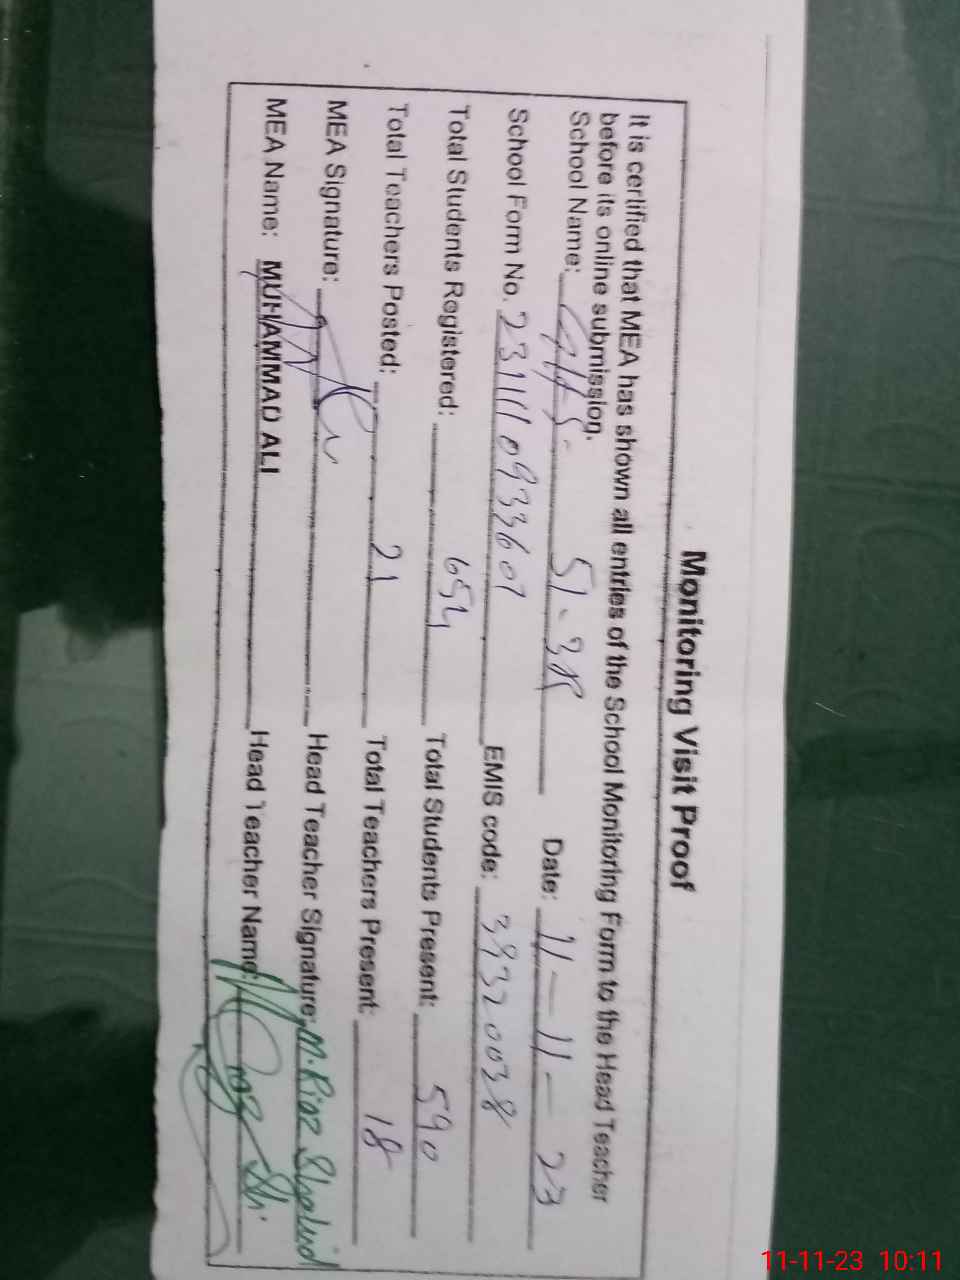 Monitoring Visit Proof
It is certified that MEA has shown all entries of the School Monitoring Form to the Head Teacher
before its online submission.
School Name: GHS. 51-3R Date: 11-11-23
School Form No. 231111093360 EMIS code: 39320038
Total Students Registered: 654 Total Students Present: 590
Total Teachers Posted: 21 Total Teachers Present: 18
MEA Signature: Head Teacher Signature: M. Riaz Shahid
MEA Name: MUHAMMAD ALI Head Teacher Name:
11-11-23 10:11